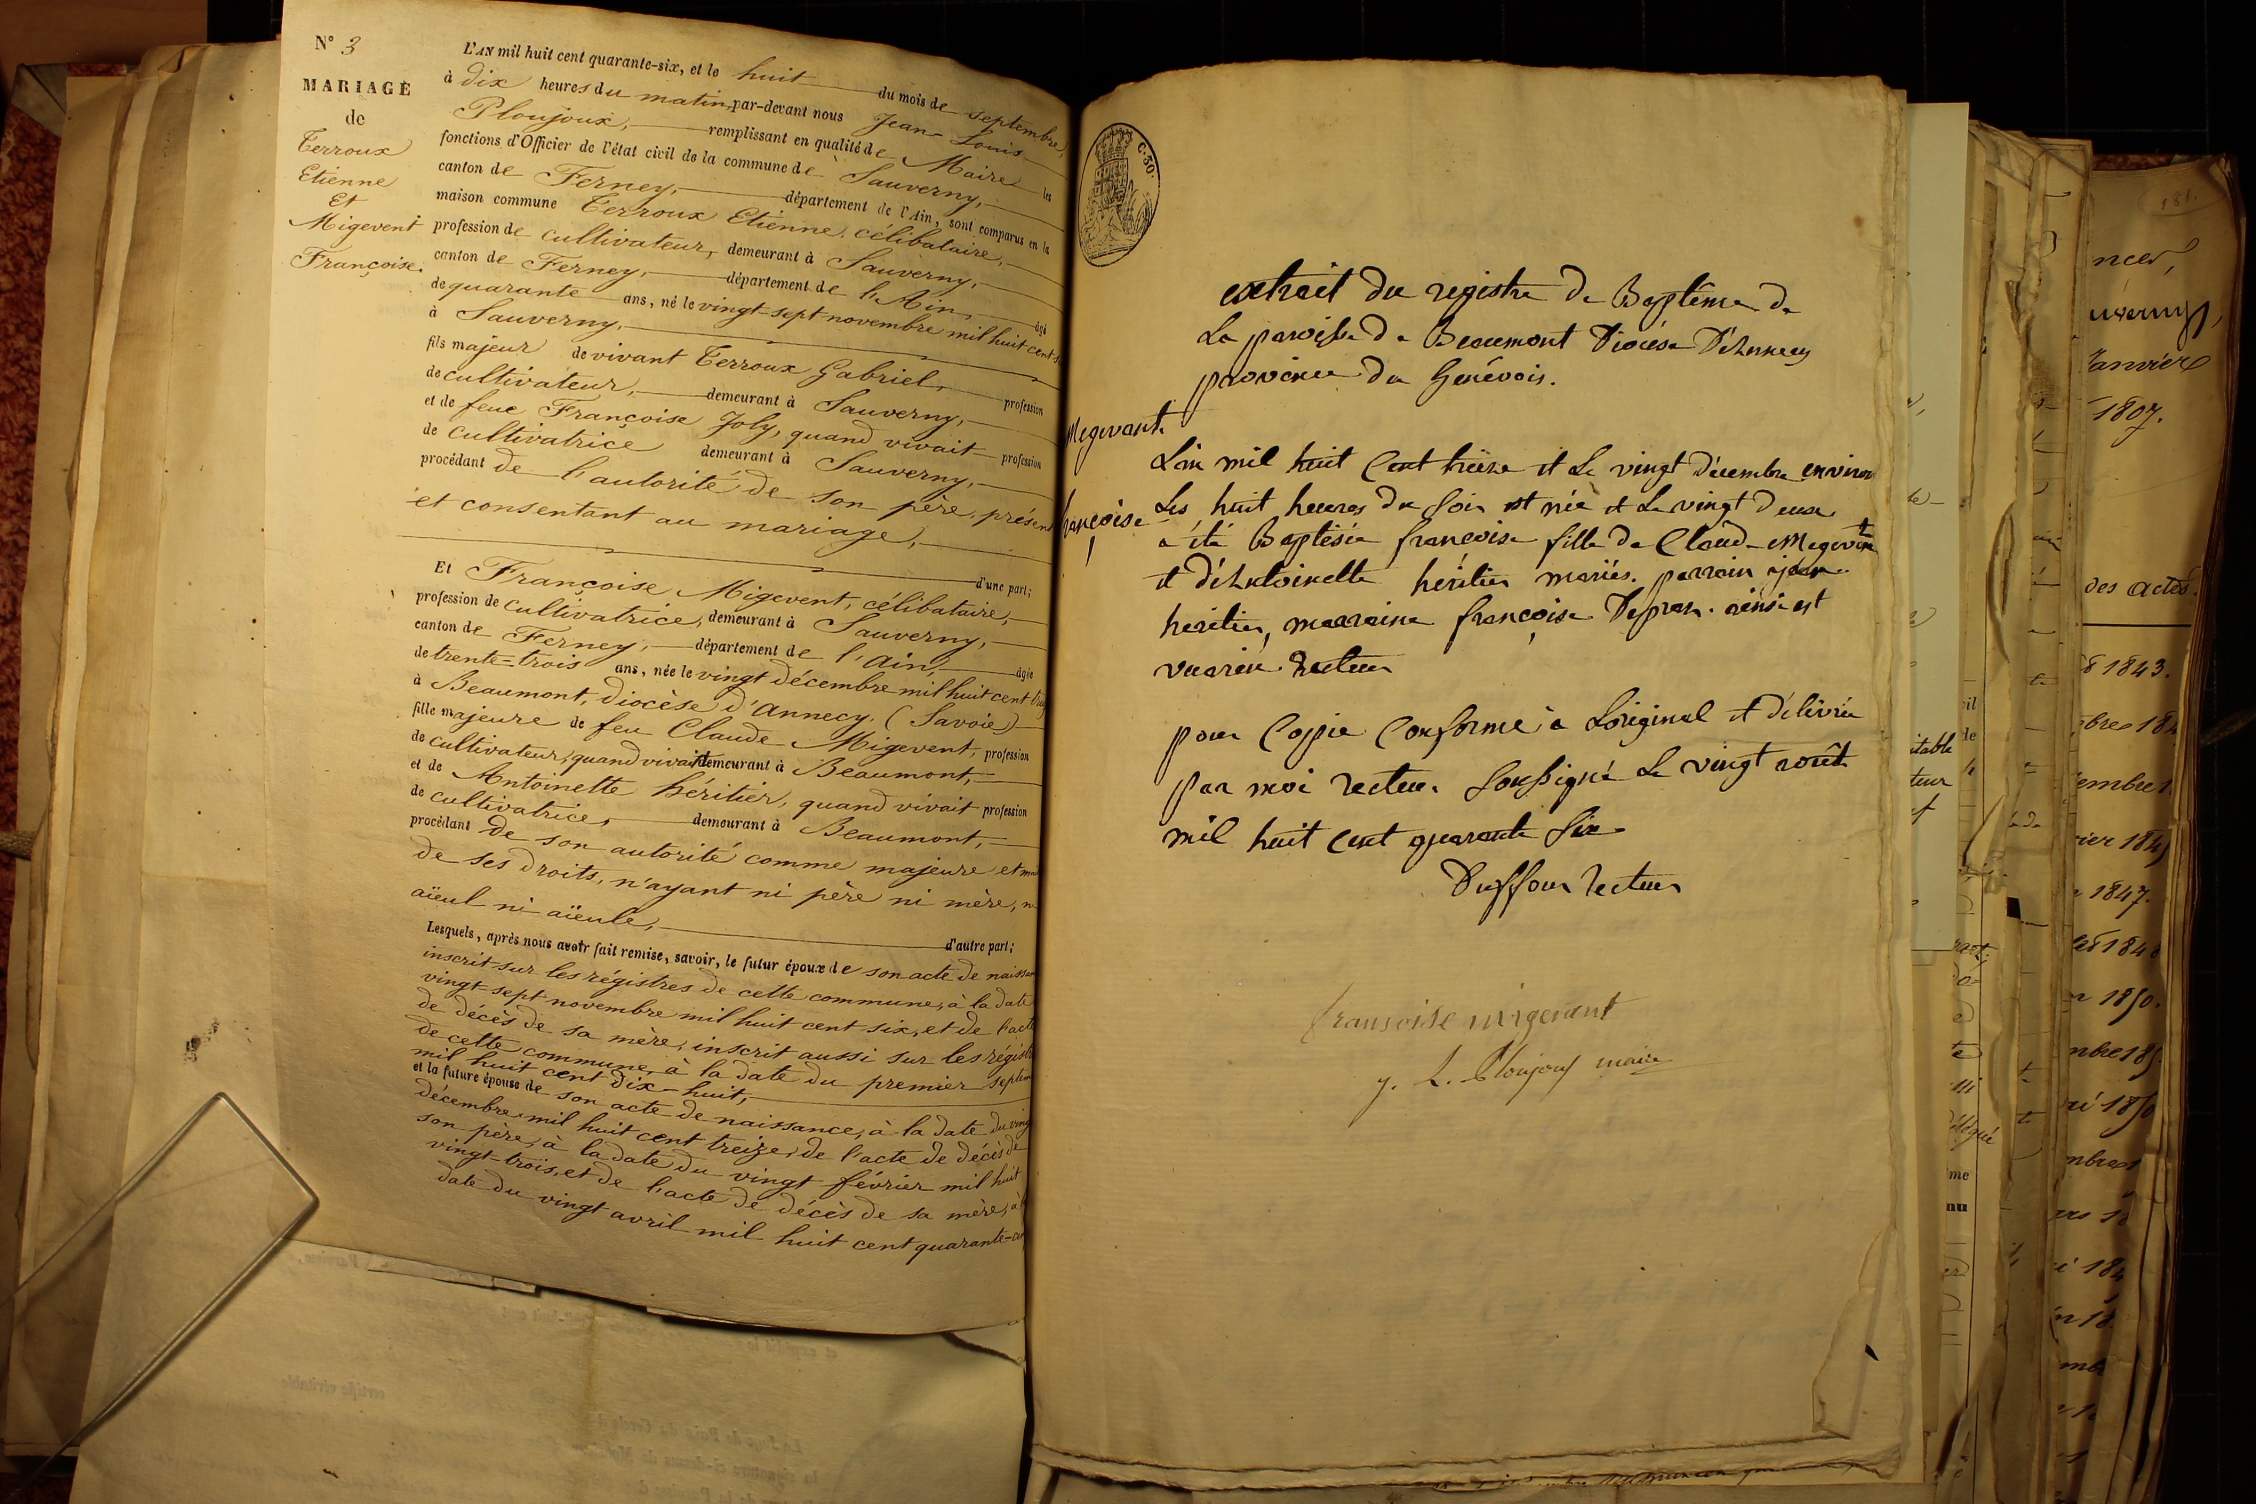 N° 3
MARIAGE
de
Terroux
Etienne
Et
Migevent
Françoise.
L'AN mil huit cent quarante-six, et le huit du mois de septembre,
à dix heures du matin, par-devant nous Jean-Louis
Ploujoux, remplissant en qualité de Maire les
fonctions d'Officier de l'état civil de la commune de Sauverny,
canton de Ferney, département de l'Ain, sont comparus en la
maison commune Terroux Etienne, célibataire,
profession de cultivateur, demeurant à Sauverny,
canton de Ferney, département de l'Ain, âgé
de quarante ans, né le vingt-sept novembre mil huit cent
à Sauverny,
fils majeur de vivant Terroux Gabriel, profession
de cultivateur, demeurant à Sauverny,
et de feue Françoise Joly, quand vivait profession
de cultivatrice demeurant à Sauverny,
procédant de l'autorité de son père, présent
et consentant au mariage,
d'une part;
Et Françoise Migevent, célibataire,
profession de cultivatrice, demeurant à Sauverny,
canton de Ferney, département de l'Ain, âgée
de trente-trois ans, née le vingt décembre mil huit cent
à Beaumont, diocèse d'Annecy, (Savoie)
fille majeure de feu Claude Migevent, profession
de cultivateur, quand vivait demeurant à Beaumont,
et de Antoinette héritier, quand vivait profession
de cultivatrice, demeurant à Beaumont,
procédant de son autorité comme majeure et
de ses droits, n'ayant ni père ni mère,
aïeul ni aïeule,
d'autre part;
Lesquels, après nous avoir fait remise, savoir, le futur époux de son acte de
inscrit sur les régistres de cette commune, à la date
vingt-sept novembre mil huit cent six, et de l'acte
de décès de sa mère, inscrit aussi sur les
de cette commune, à la date du premier
mil huit cent dix-huit,
et la future épouse de son acte de naissance, à la date du
décembre mil huit cent treize, de l'acte de décès de
son père, à la date du vingt février mil huit
vingt-trois, et de l'acte de décès de sa mère, à
date du vingt avril mil huit cent quarante-
C. 30.
extrait du registre de Baptême de
La paroisse de Beaumont Diocése D'Annecy
province du Genévois.
Megevant
françoise
L'an mil huit Cent treize et Le vingt Décembre environ
Les huit heures du soir est née et Le vingt deux
a été Baptésée françoise fille de Claude Megevant
et d'Antoinette héritier mariés. parrain jean
héritier, marraine françoise Depraz. ainsi est
recteur
pour Copie Conforme à L'original et délivrée
par moi recteur Soussigné Le vingt août
mil huit cent quarante Six
Duffour recteur
fransoise migevant
j. L. Ploujoux maire
181.
Janvier
1807.
des actes.
1843.
1847.
1850.